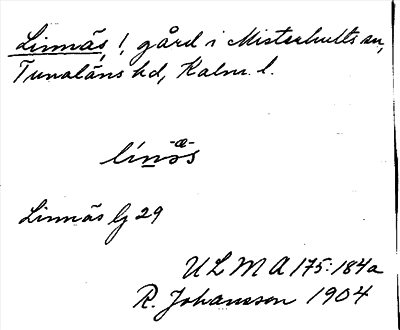 Linnäs, !, gård i Misterhults sn,
Tunaläns hd, Kalm. l.
-æ-
línäs
Linnäs lg 29
ULMA 175:184a
R. Johansson 1904